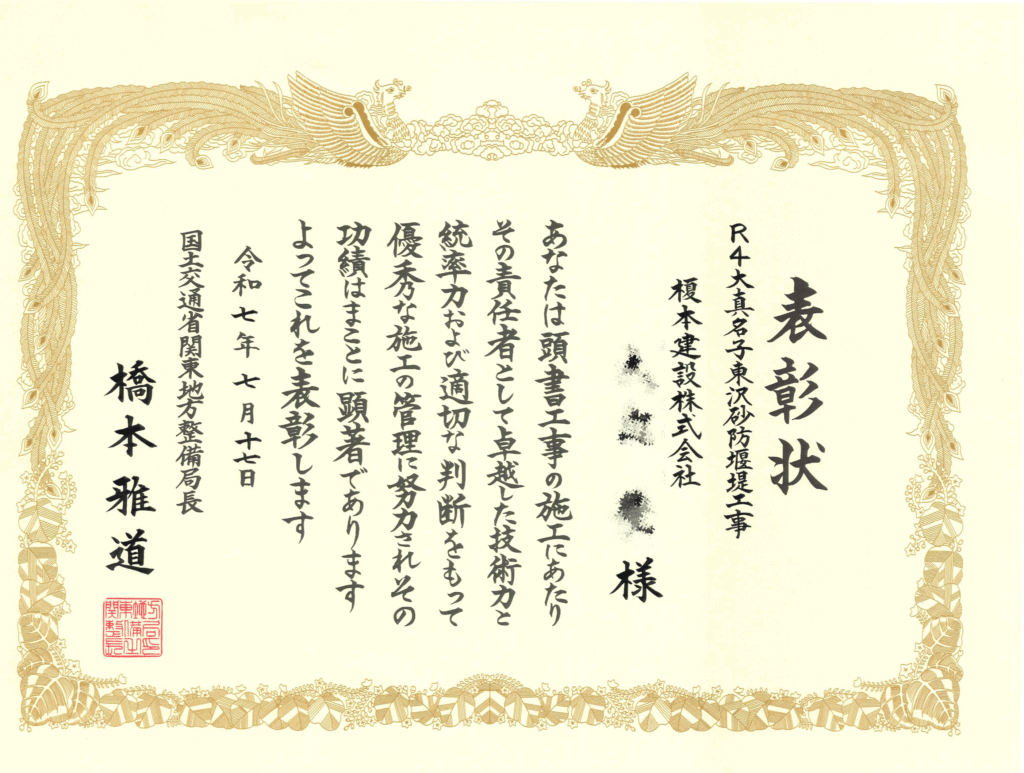 表彰状
R4大真名子東沢砂防堰堤工事
榎本建設株式会社
様
あなたは頭書工事の施工にあたり
その責任者として卓越した技術力と
統率力および適切な判断をもって
優秀な施工の管理に努力されその
功績はまことに顕著であります
よってこれを表彰します
令和七年七月十七日
国土交通省関東地方整備局長
橋本雅道